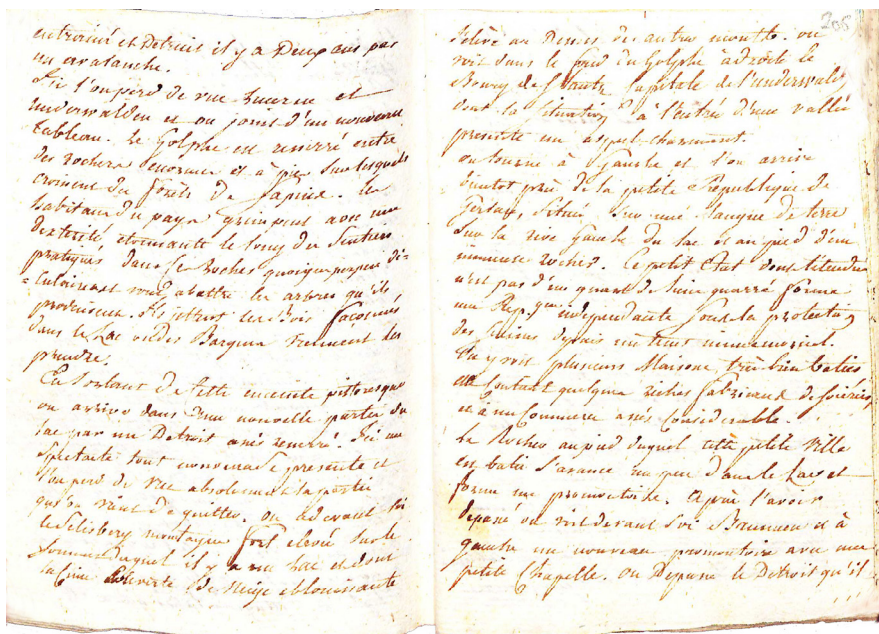 entrainé et Detruit il y a Deux ans par
un avalanche.
Ici l'on perd de vue Lucerne et
Underwalden et on jouit d'un nouveau
tableau. Le Golphe est resserré entre
des rochers enormes et à pic sur lesquels
croissent des forêts de Sapins. Les
habitans du pays grimpent avec une
dexterité etonnante le long des Sentiers
pratiqués dans ces Roches quoique perpendi-
=culaires et vont abattre les arbres qu'ils
produisent. Ils jettent les Bois façonnés
dans le Lac où des Barques viennent les
prendre.
En Sortant de Cette enceinte pittoresque
on arrive dans une nouvelle partie du
lac par un Detroit assés serré. Ici un
Spectacle tout nouveau se presente et
l'on perd de vue absolument la partie
qu'on vient de quitter. on a devant soi
le Selisberg montagne fort elevée sur le
Sommet duquel il y a un Lac et dont
la Cime Couverte de Neige eblouissante
s'élève au Dessus des autres monts. on
voit dans le fond du Golphe à droite le
Bourg de Capitale de l'underwald
dont la Situation à l'entrée d'une vallée
presente un aspect charmant.
on tourne à Gauche et l'on arrive
bientot près de la petite République de
Gersau, Située Sur une Langue de terre
Sur la rive Gauche du lac et au pied d'un
immense rocher. Ce petit Etat dont l'étendue
n'est pas d'un quart de lieue quarré forme
une Rep.que independante Sous la protection
des Suisses depuis un tems immemorial.
On y voit plusieurs Maisons très bien baties
Contient quelques riches fabricans de Soieries,
et a un Commerce assés Considerable.
Le Rocher au pied duquel cette petite Ville
est batie S'avance un peu dans le Lac et
forme un promontoire. Après l'avoir
depassé on voit devant Soi Brunnen et à
gauche un nouveau promontoire avec une
petite Chapelle. on Depasse le Detroit qu'il